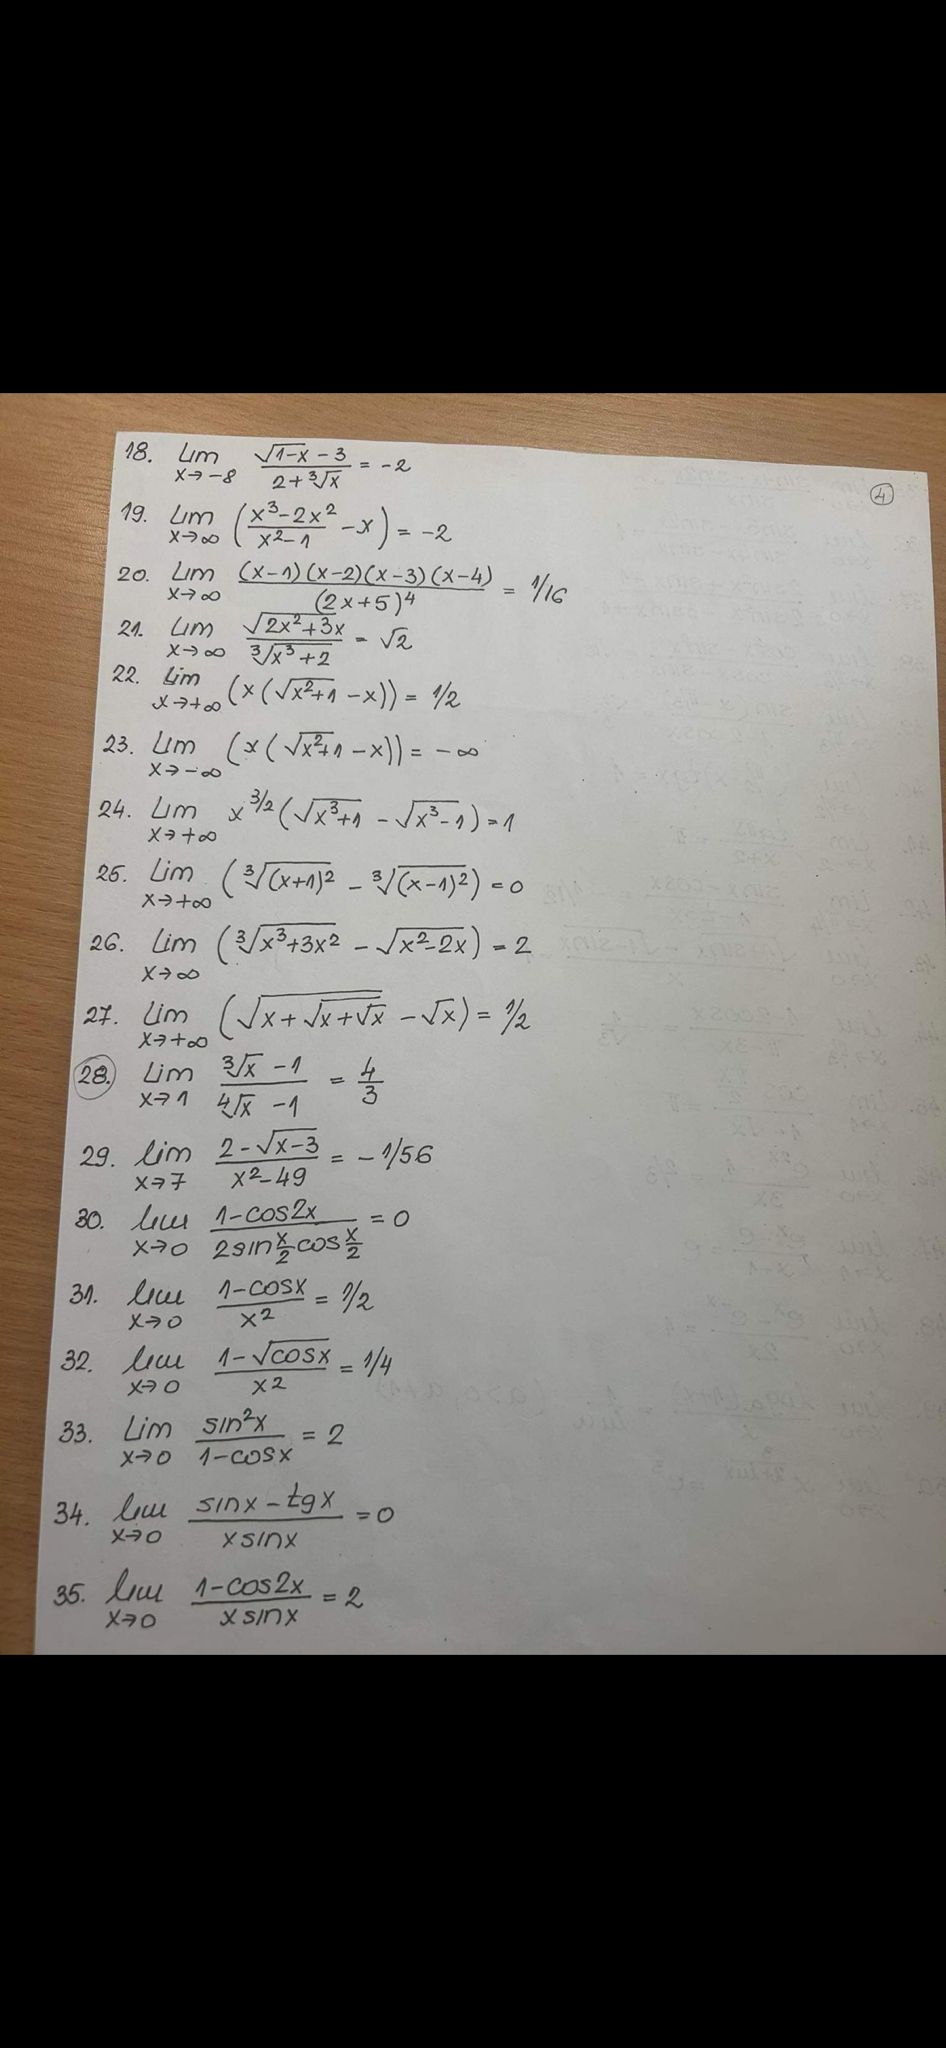 ④
18. lim x→-8 (√1-x - 3)/(2+∛x) = -2
19. lim x→∞ ((x³-2x²)/(x²-1) - x) = -2
20. lim x→∞ ((x-1)(x-2)(x-3)(x-4))/((2x+5)⁴) = 1/16
21. lim x→∞ (√2x²+3x)/(∛x³+2) = √2
22. lim x→+∞ (x(√x²+1 - x)) = 1/2
23. lim x→-∞ (x(√x²+1 - x)) = -∞
24. lim x→+∞ x^3/2 (√x³+1 - √x³-1) = 1
25. lim x→+∞ (∛(x+1)² - ∛(x-1)²) = 0
26. lim x→∞ (∛x³+3x² - √x²-2x) = 2
27. lim x→+∞ (√x+√x+√x - √x) = 1/2
28. lim x→1 (∛x - 1)/(∜x - 1) = 4/3
29. lim x→7 (2-√x-3)/(x²-49) = -1/56
30. lim x→0 (1-cos2x)/(2sin x/2 cos x/2) = 0
31. lim x→0 (1-cosx)/x² = 1/2
32. lim x→0 (1-√cosx)/x² = 1/4
33. lim x→0 (sin²x)/(1-cosx) = 2
34. lim x→0 (sinx-tgx)/(x sinx) = 0
35. lim x→0 (1-cos2x)/(x sinx) = 2